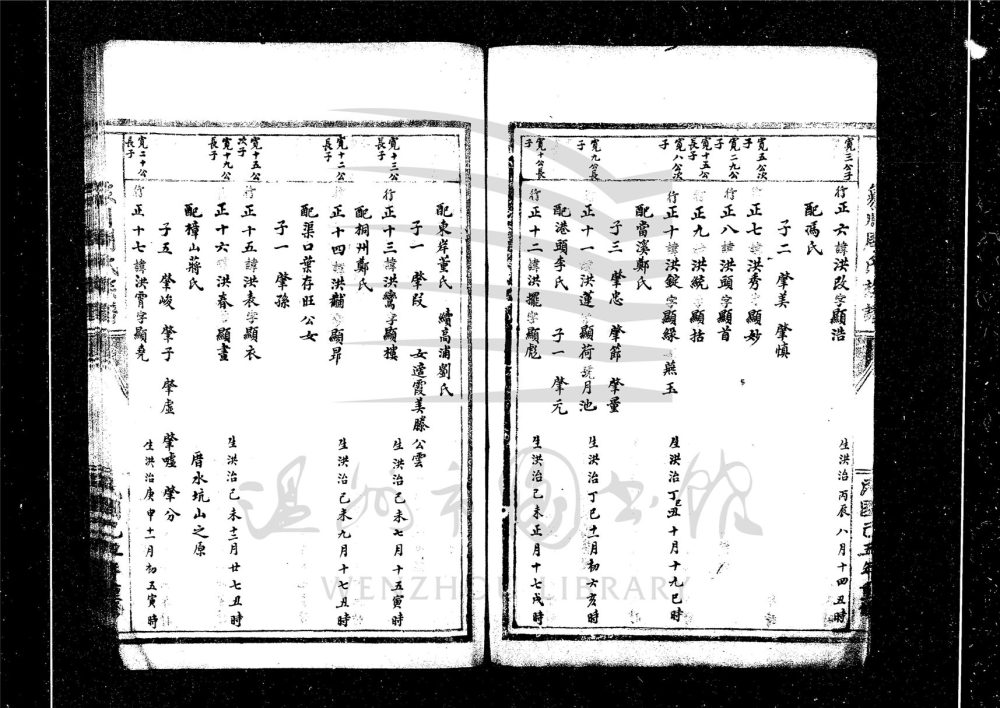 寬三公子
行正六諱洪改字顯浩
生洪治丙辰八月十四丑時
配馮氏
子二 肇美 肇慎
寬五公次子
正七 洪秀 顯妙
寬二九公子
正八諱洪頭字顯首
寬十五公長子
行正九諱洪統 顯祜
寬八公次子
行正十諱洪錠字顯綠 燕玉
生洪治丁丑十月十九巳時
配當溪鄭氏
子三 肇忠 肇節 肇量
寬九公長子
正十一 洪運 顯荷號月池
生洪治丁巳十一月初六亥時
配港頭李氏 子一 肇元
寬十公長子
行正十二諱洪擺字顯彪
生洪治己未正月十七戌時
配東岸董氏 續高浦劉氏
子一 肇段 女適霞美滕公雲
寬十三公長子
行正十三諱洪鸞字顯樓
生洪治己未七月十五寅時
配桐州鄭氏
寬十二公長子
正十四 洪黼 顯昇
生洪治己未九月十七丑時
配渠口葉存旺公女
子一 肇孫
寬十五公次子
行正十五諱洪表字顯衣
寬十九公長子
正十六 洪春 顯晝
生洪治己未十二月廿七丑時
配樟山蔣氏
厝水坑山之原
子五 肇峻 肇子 肇虛 肇噓 肇分
寬二十公長子
行正十七諱洪霄字顯堯
生洪治庚申十一月初五寅時
溫州市圖書館
WENZHOU LIBRARY